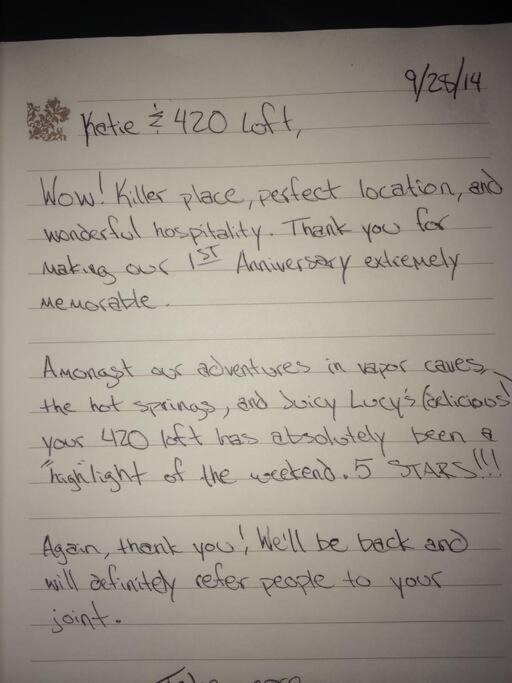 9/28/14
Katie & 420 Loft,
Wow! Killer place, perfect location, and
wonderful hospitality. Thank you for
making our 1ST Anniversary extremely
memorable.
Amongst our adventures in vapor caves,
the hot springs, and Juicy Lucy's (delicious)
your 420 loft has absolutely been a
"high"light of the weekend. 5 STARS!!!
Again, thank you! We'll be back and
will definitely refer people to your
joint.
Take care